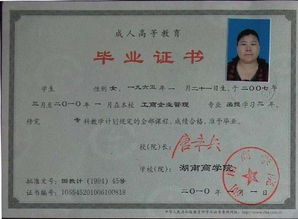 成人高等教育
毕业证书
学生 性别 女，一九六五年 一 月二十一日生，于二〇〇七
年 三月至二〇一〇年 一 月在本校 工商企业管理 专业 函授 学习
修完 专 科教学计划规定的全部课程，成绩合格，准予毕业。
校(院)长：
学校(院)： 湖南商学院
批准文号：国教计（1994）45号
证书编号：105545201006100818
二〇一〇年 一 月 一 日